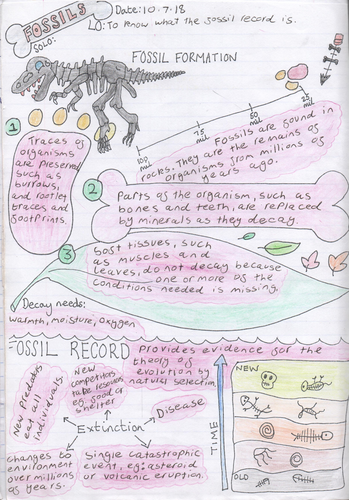 FOSSILS
SOLO:
Date: 10.7.18
LO: To know what the fossil record is.
FOSSIL FORMATION
100 mil
75 mil
50 mil
25 mil
Fossils are found in
rocks. They are the remains of
organisms from millions of
years ago.
1
Traces of
organisms
are preserved
such as
burrows,
and rootlet
traces and
footprints.
2
Parts of the organism, such as
bones and teeth, are replaced
by minerals as they decay.
3
Soft tissues, such
as muscles and
leaves, do not decay because
one or more of the
conditions needed is missing.
Decay needs:
warmth, moisture, oxygen
FOSSIL RECORD
Provides evidence for the
theory of
evolution by
natural selection.
New Predators
eat all
individuals.
New
competitors
take resources
eg. food or
shelter
Disease
Extinction
changes to
environment
over millions
of years.
Single catastrophic
event, eg: asteroid
or volcanic eruption.
TIME
NEW
OLD